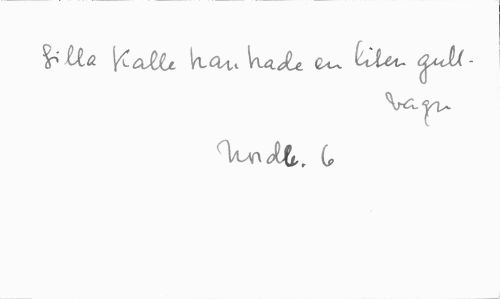 Lilla Kalle han hade en liten gull-
vagn
Nordl. 6